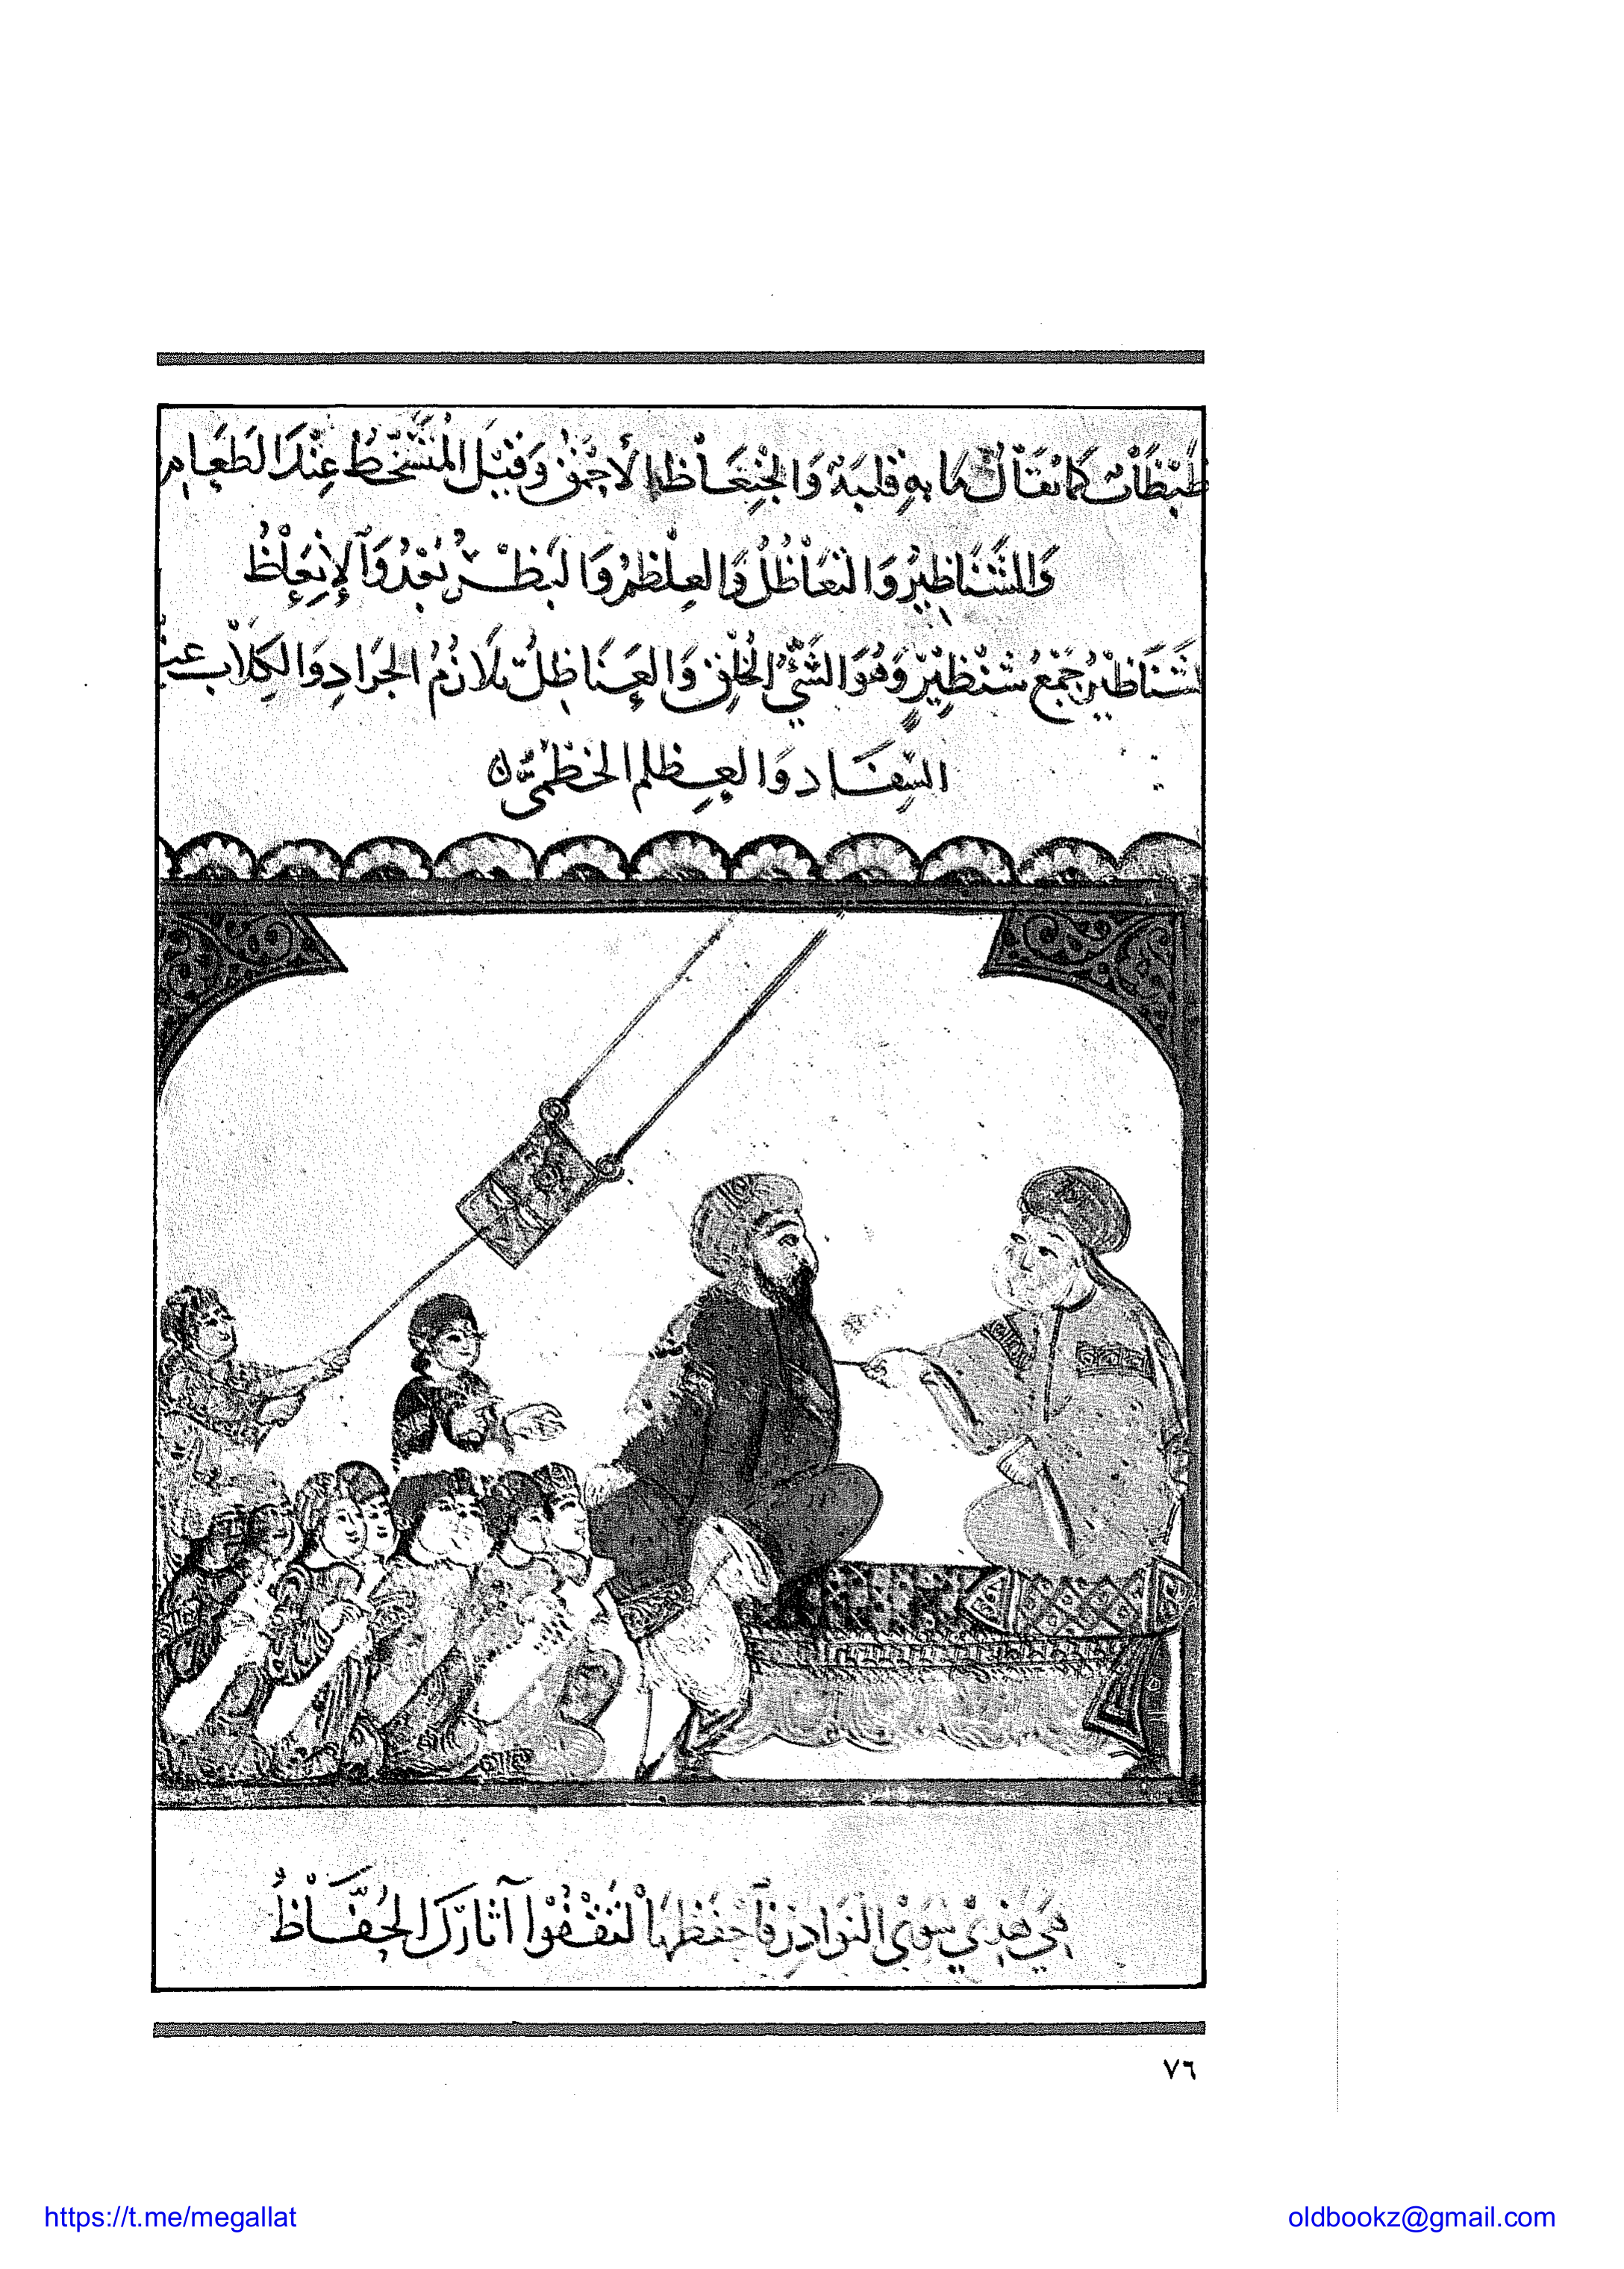 ظَبْظَابٌ كَمَا يُقَالُ مَا بِهِ قَلَبَةٌ وَالْجِنْعَاظُ الأَحْمَقُ وَقِيلَ الْمُتَسَخِّطُ عِنْدَ الطَّعَامِ
وَالشَّنَاظِيرُ وَالتَّعَاظُلُ وَالْعِظْلِمُ وَالْبَظْرُ بَعْدُ وَالْإِنْعَاظُ
الشَّنَاظِيرُ جَمْعُ شِنْظِيرٍ وَهُوَ السَّيِّئُ الْخُلُقِ وَالتَّعَاظُلُ تَلَازُمُ الْجَرَادِ وَالْكِلَابِ عِنْدَ
السِّفَادِ وَالْعِظْلِمُ
هِيَ هَذِي سِوَى النَّوَادِرِ فَاحْفَظْهَا لِتَقْفُوْا آثَارَكَ الْحُفَّاظُ
٧٦
https://t.me/megallat
oldbookz@gmail.com